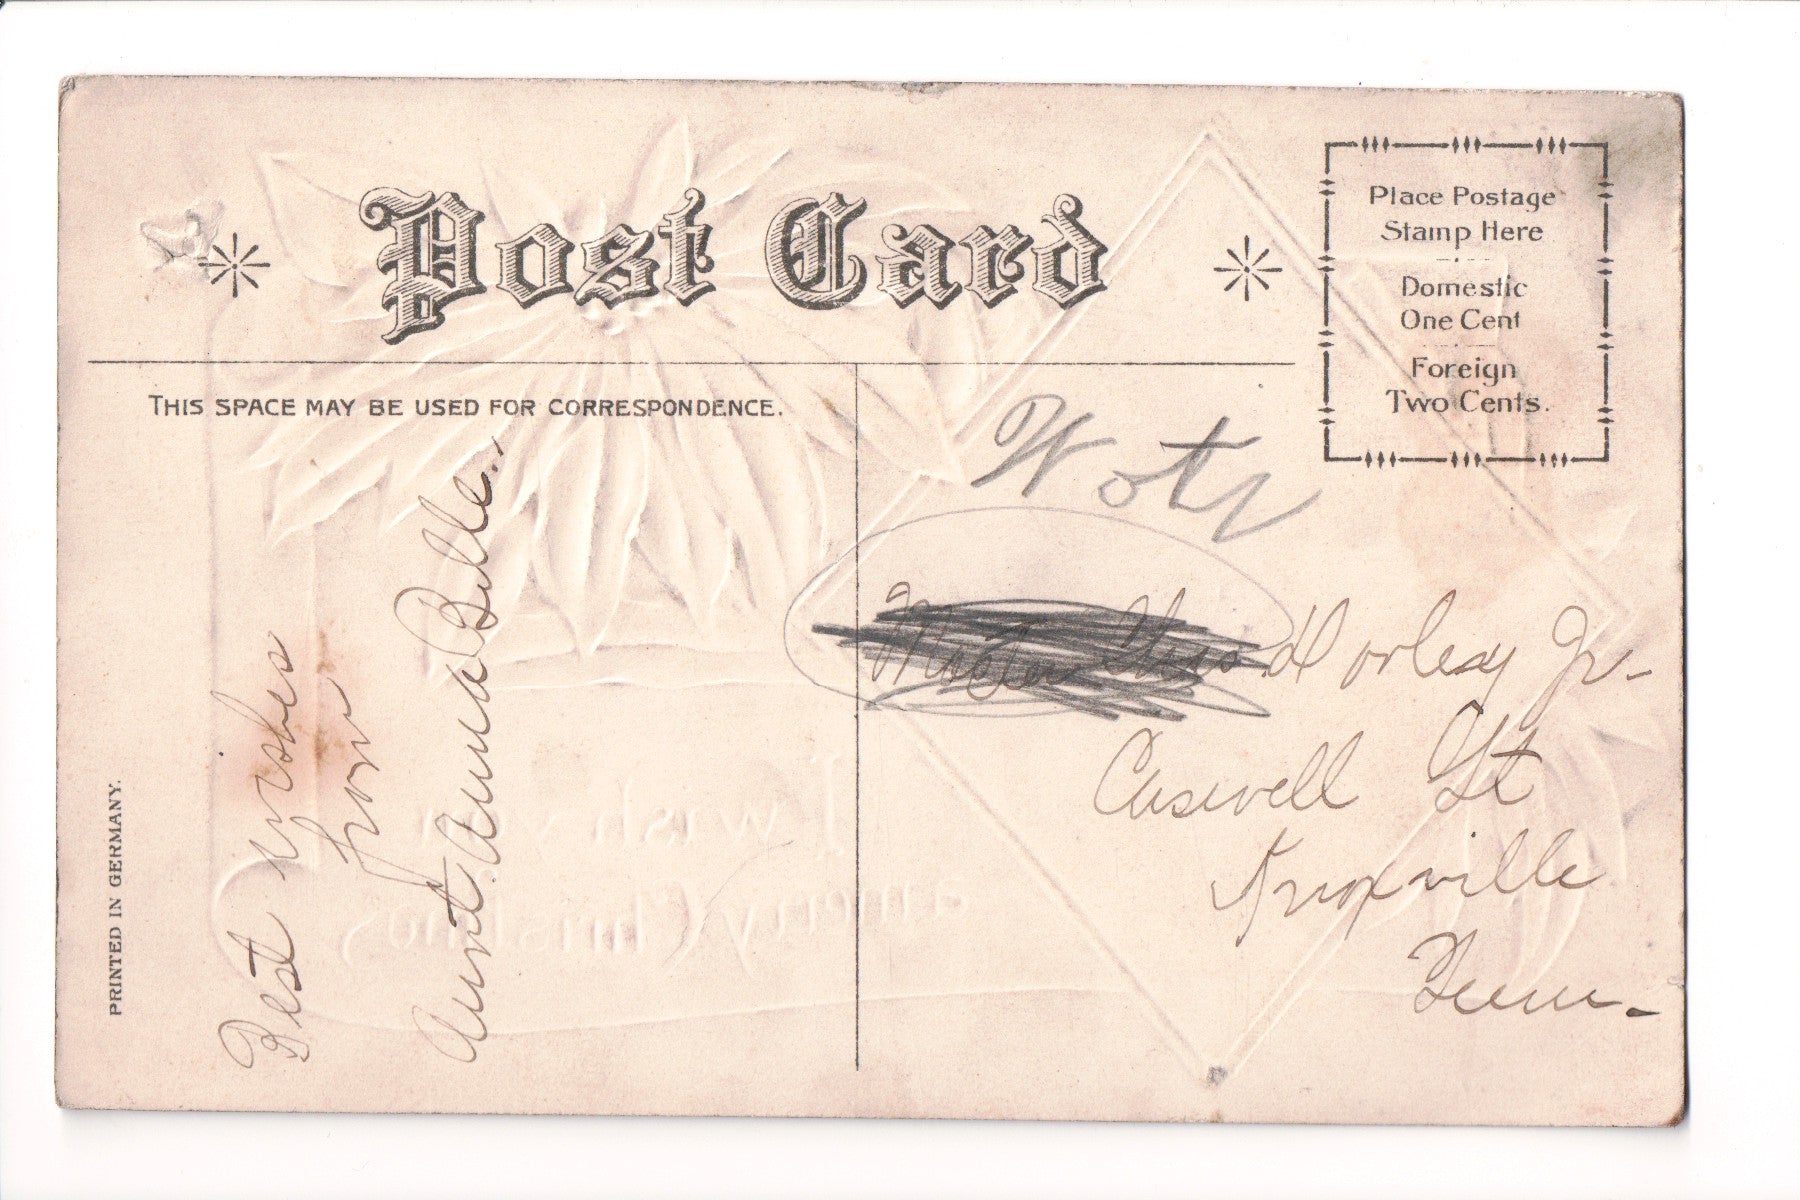 Post Card
Place Postage
Stamp Here
Domestic
One Cent
Foreign
Two Cents.
THIS SPACE MAY BE USED FOR CORRESPONDENCE.
Best wishes
from
Aunt Anna Belle.
PRINTED IN GERMANY.
Master Chas Horley Jr-
Caswell St
Knoxville
Tenn-
I wish you
a merry Christmas